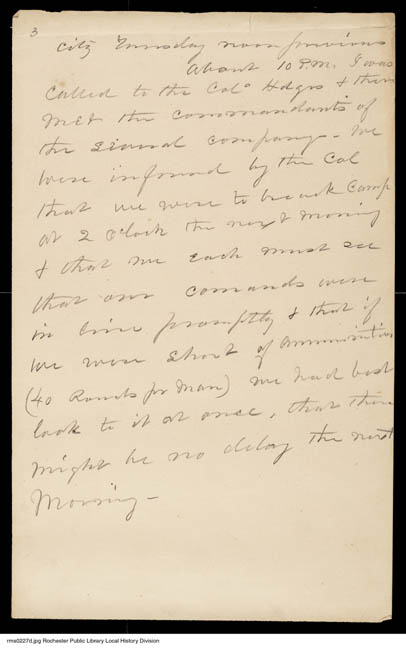 3
city Tuesday noon previous
About 10 P.M. I was
Called to the Cols Hdqrs & there
met the Commandants of
the several companys - We
were informed by the Col
that we were to break Camp
at 2 o'clock the next morning
& that we each must see
that our comands were
in line promptly & that if
we were short of Ammunition
(40 Rounds pr Man) we had best
look to it at once, that there
might be no delay the next
Morning -
rms0227d.jpg Rochester Public Library Local History Division